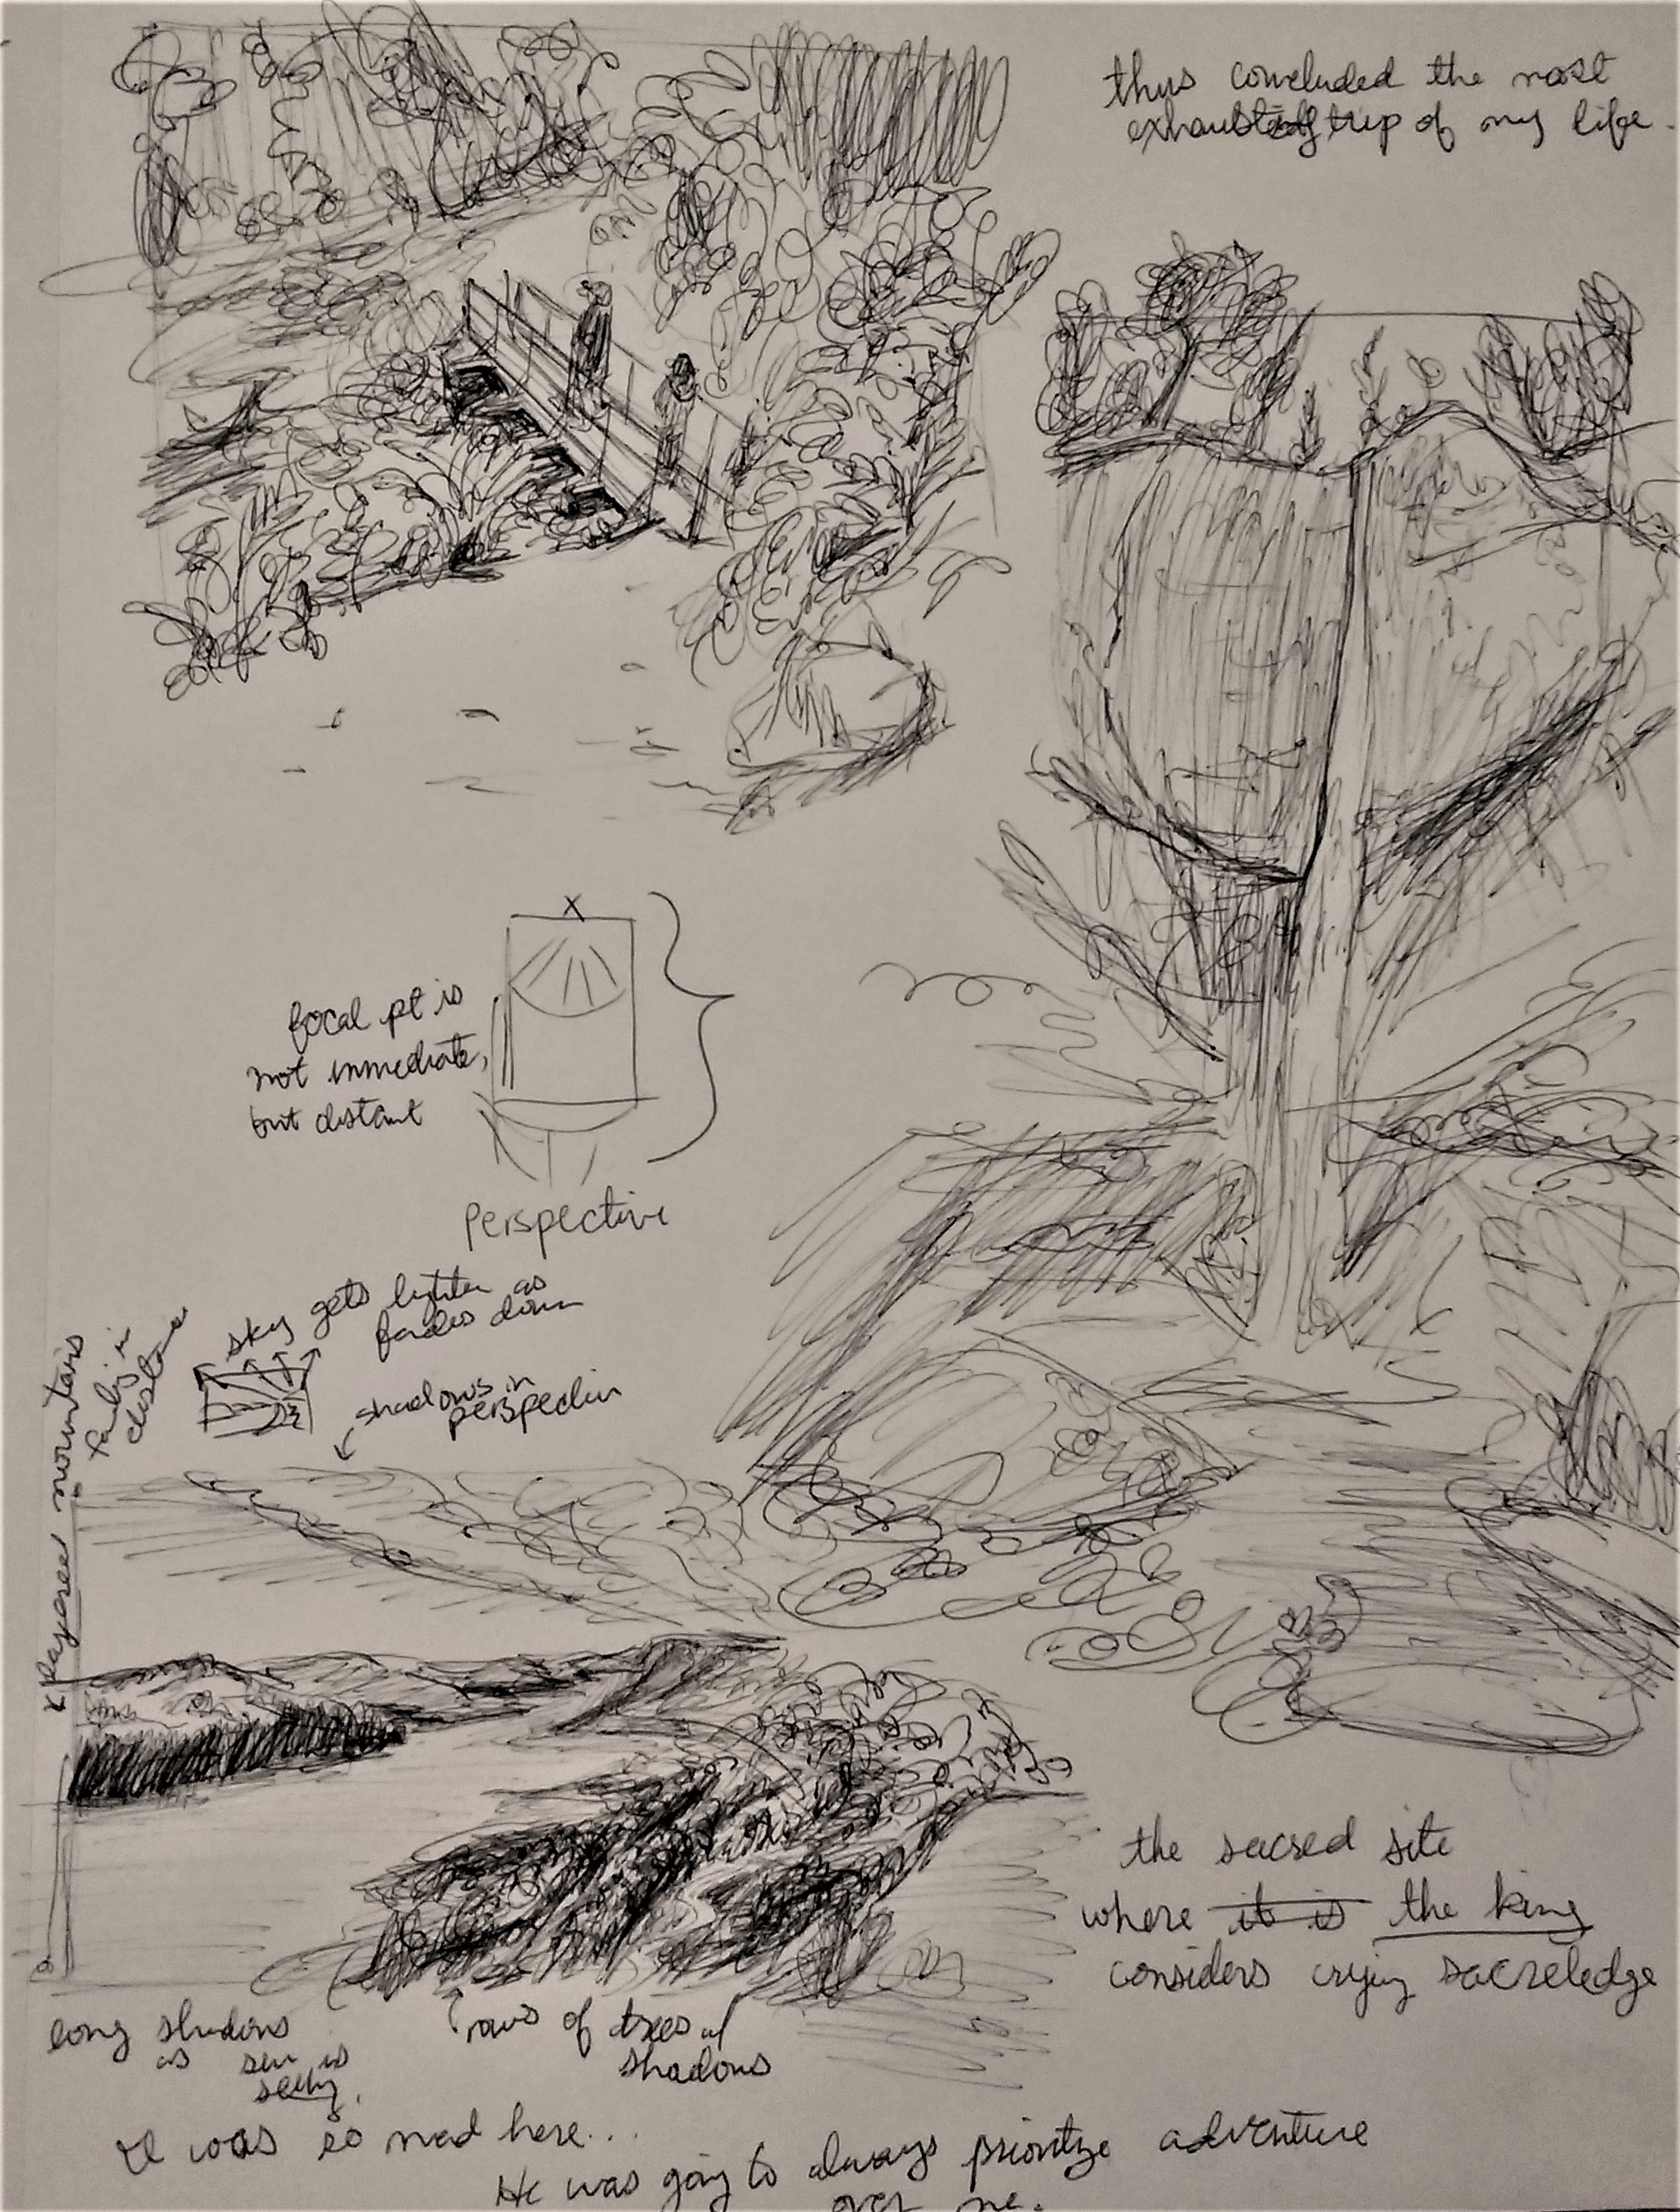 thus concluded the most
exhausting trip of my life.
focal pt is
not immediate,
but distant
x
Perspective
sky gets lighter as
fades down
shadows in
perspectiv
x layered mountains
fading in
distance
the sacred site
where it is the king
considers crying sacreledge
long shadows
as sun is
setting.
rows of trees w/
shadows
I was so mad here...
He was going to always prioritize adventure
over me.